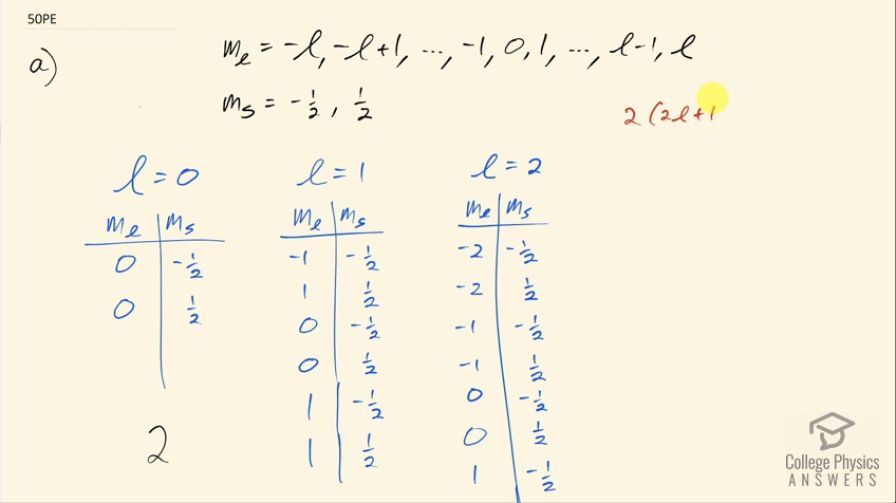 50PE
a)
mₗ = -l, -l+1, ..., -1, 0, 1, ..., l-1, l
mₛ = -1/2, 1/2
2(2l+1
l = 0
mₗ | mₛ
0 | -1/2
0 | 1/2
2
l = 1
mₗ | mₛ
-1 | -1/2
1 | 1/2
0 | -1/2
0 | 1/2
1 | -1/2
1 | 1/2
l = 2
mₗ | mₛ
-2 | -1/2
-2 | 1/2
-1 | -1/2
-1 | 1/2
0 | -1/2
0 | 1/2
1 | -1/2
College Physics
ANSWERS